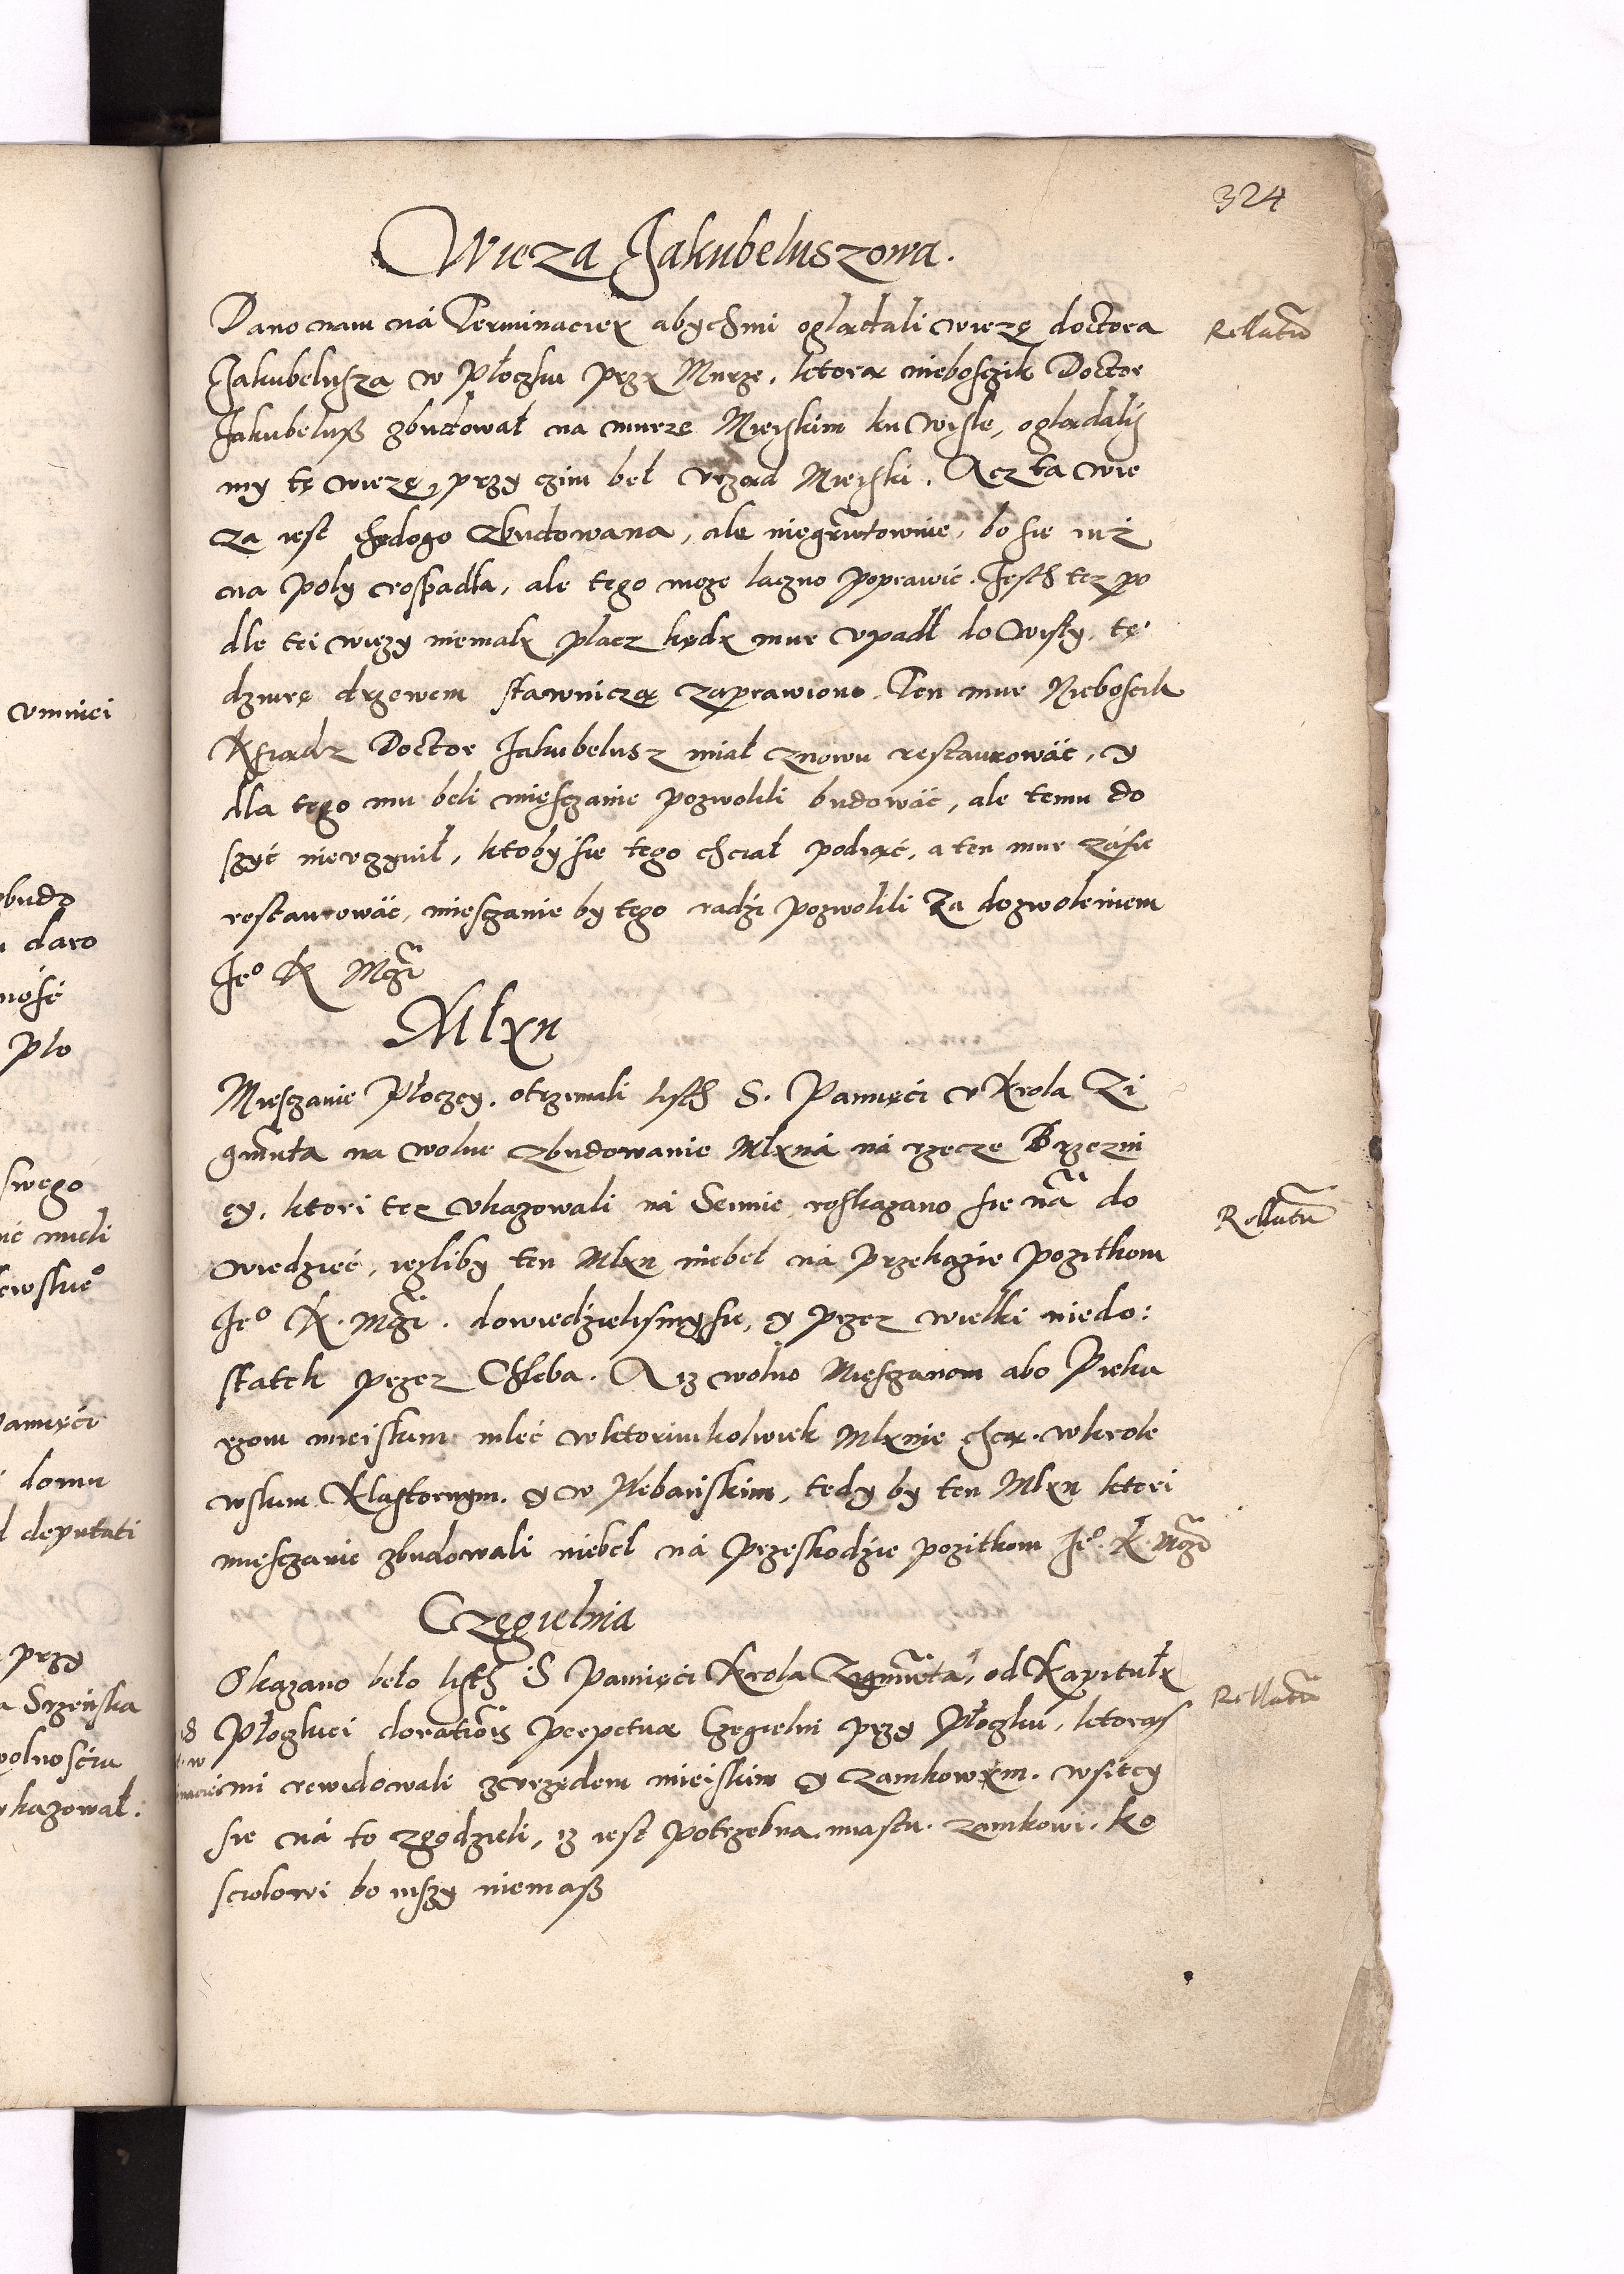 324
Wieza Jakubeluszowa.
Dano nam ná Terminaciex abychmi oglądali wiezę doctora
Rellatũ
Jakubelusza w Płoczku przx Murze, ktorą nieboszik Doctor
Jakubeluß zbudował na murze Mieiskim ku Wisle, oglądalis
my tę wiezę, przy czim beł vrząd Mieiski. Acz ta wie
za iest chędogo zbudowana, ale niegrũtownie, bo sie iuż
na poły rospadła, ale tego moze laczno poprawić. Jesth tez po
dle tei wiezy niemałx placz kędx mur vpadł do Wisły, tę
dziurę drzewem stawniczą zaprawiono. Ten mur Nieboscik
Ksiądz Doctor Jakubelusz miał znowu restaurowäc, y
dla tego mu beli miesczanie pozwolili budowäc, ale temu do
szyć nieuczynił, ktoby sie tego chciał podiąć, a ten mur zásie
restaurowäc, miesczanie by tego radzi pozwolili za dozwoleniem
Je° K Mczi
Mlxn
Miesczanie Płoczcy, otrzimali listh S. Pamięci v Krola Zi
gmũta na wolne zbudowanie Mlxná ná rzecze Brzezni
cy, ktori tez vkazowali ná Seimie, roskazano sie nã do
Rellatũ
wiedzieć, iesliby ten Mlxn niebeł ná przekazie pozitkom
Je° K. Mczi. dowiedzielismysie, y przez wielki niedo:
statek przez Chleba. A iz wolno Miesczanom abo Pieka
rzom mieiskim mleć wktorimkolwiek Mlxnie chcą. wkrole
wskim Klastornym. y w Plebańskim, tedy by ten Mlxn ktori
miesczanie zbudowali niebeł ná przeskodzie pozitkom Je° K. Mczi
Czegielnia
Okazano beło listh S Pamięci Krola Zigmũta, od Kapitułx
Rellatũ
Płoczkiei donatiõis perpetuæ Czegielni przy Płoczku, ktorąs
mi rewidowali zvrzędem mieiskim y zamkowxm. wsitcy
sie ná to zgodzieli, iz iest potrzebna miastu. zamkowi. ko
sciołowi bo inszy niemaß
vmniei
zbudo
daro
nośc
Plo
swego
mieli
Pamięci
domu
deputati
przy
Srzeńska
wolnoscia
vkazował.